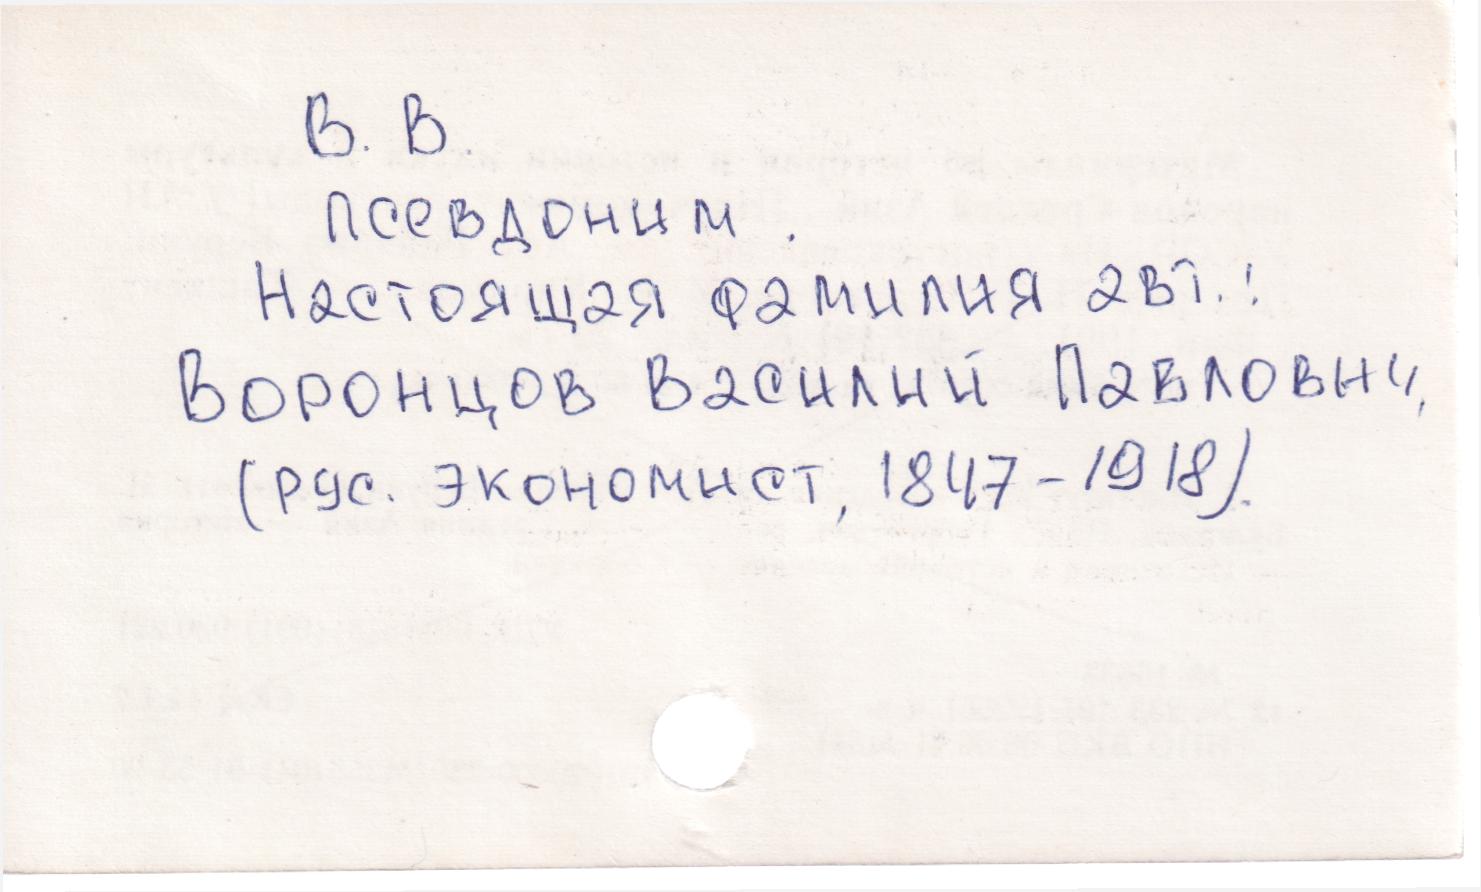 В. В.
псевдоним.
Настоящая фамилия авт.:
Воронцов Василий Павлович,
(рус. экономист, 1847-1918).